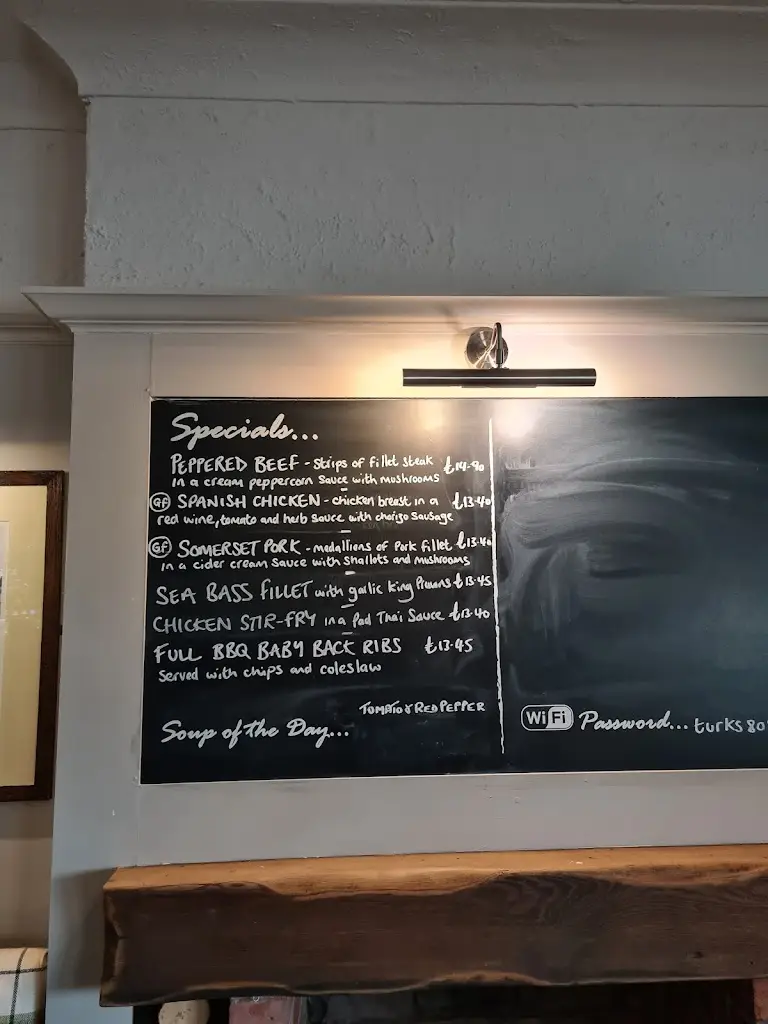 Specials...
PEPPERED BEEF - Strips of fillet steak £14.90
in a cream peppercorn sauce with mushrooms
GF SPANISH CHICKEN - chicken breast in a £13.40
red wine, tomato and herb sauce with chorizo sausage
GF SOMERSET PORK - medallions of pork fillet £13.40
in a cider cream sauce with shallots and mushrooms
SEA BASS FILLET with garlic king prawns £13.45
CHICKEN STIR-FRY in a Pad Thai Sauce £13.40
FULL BBQ BABY BACK RIBS £13.45
Served with chips and coleslaw
TOMATO & RED PEPPER
Soup of the Day...
WiFi Password... turks80